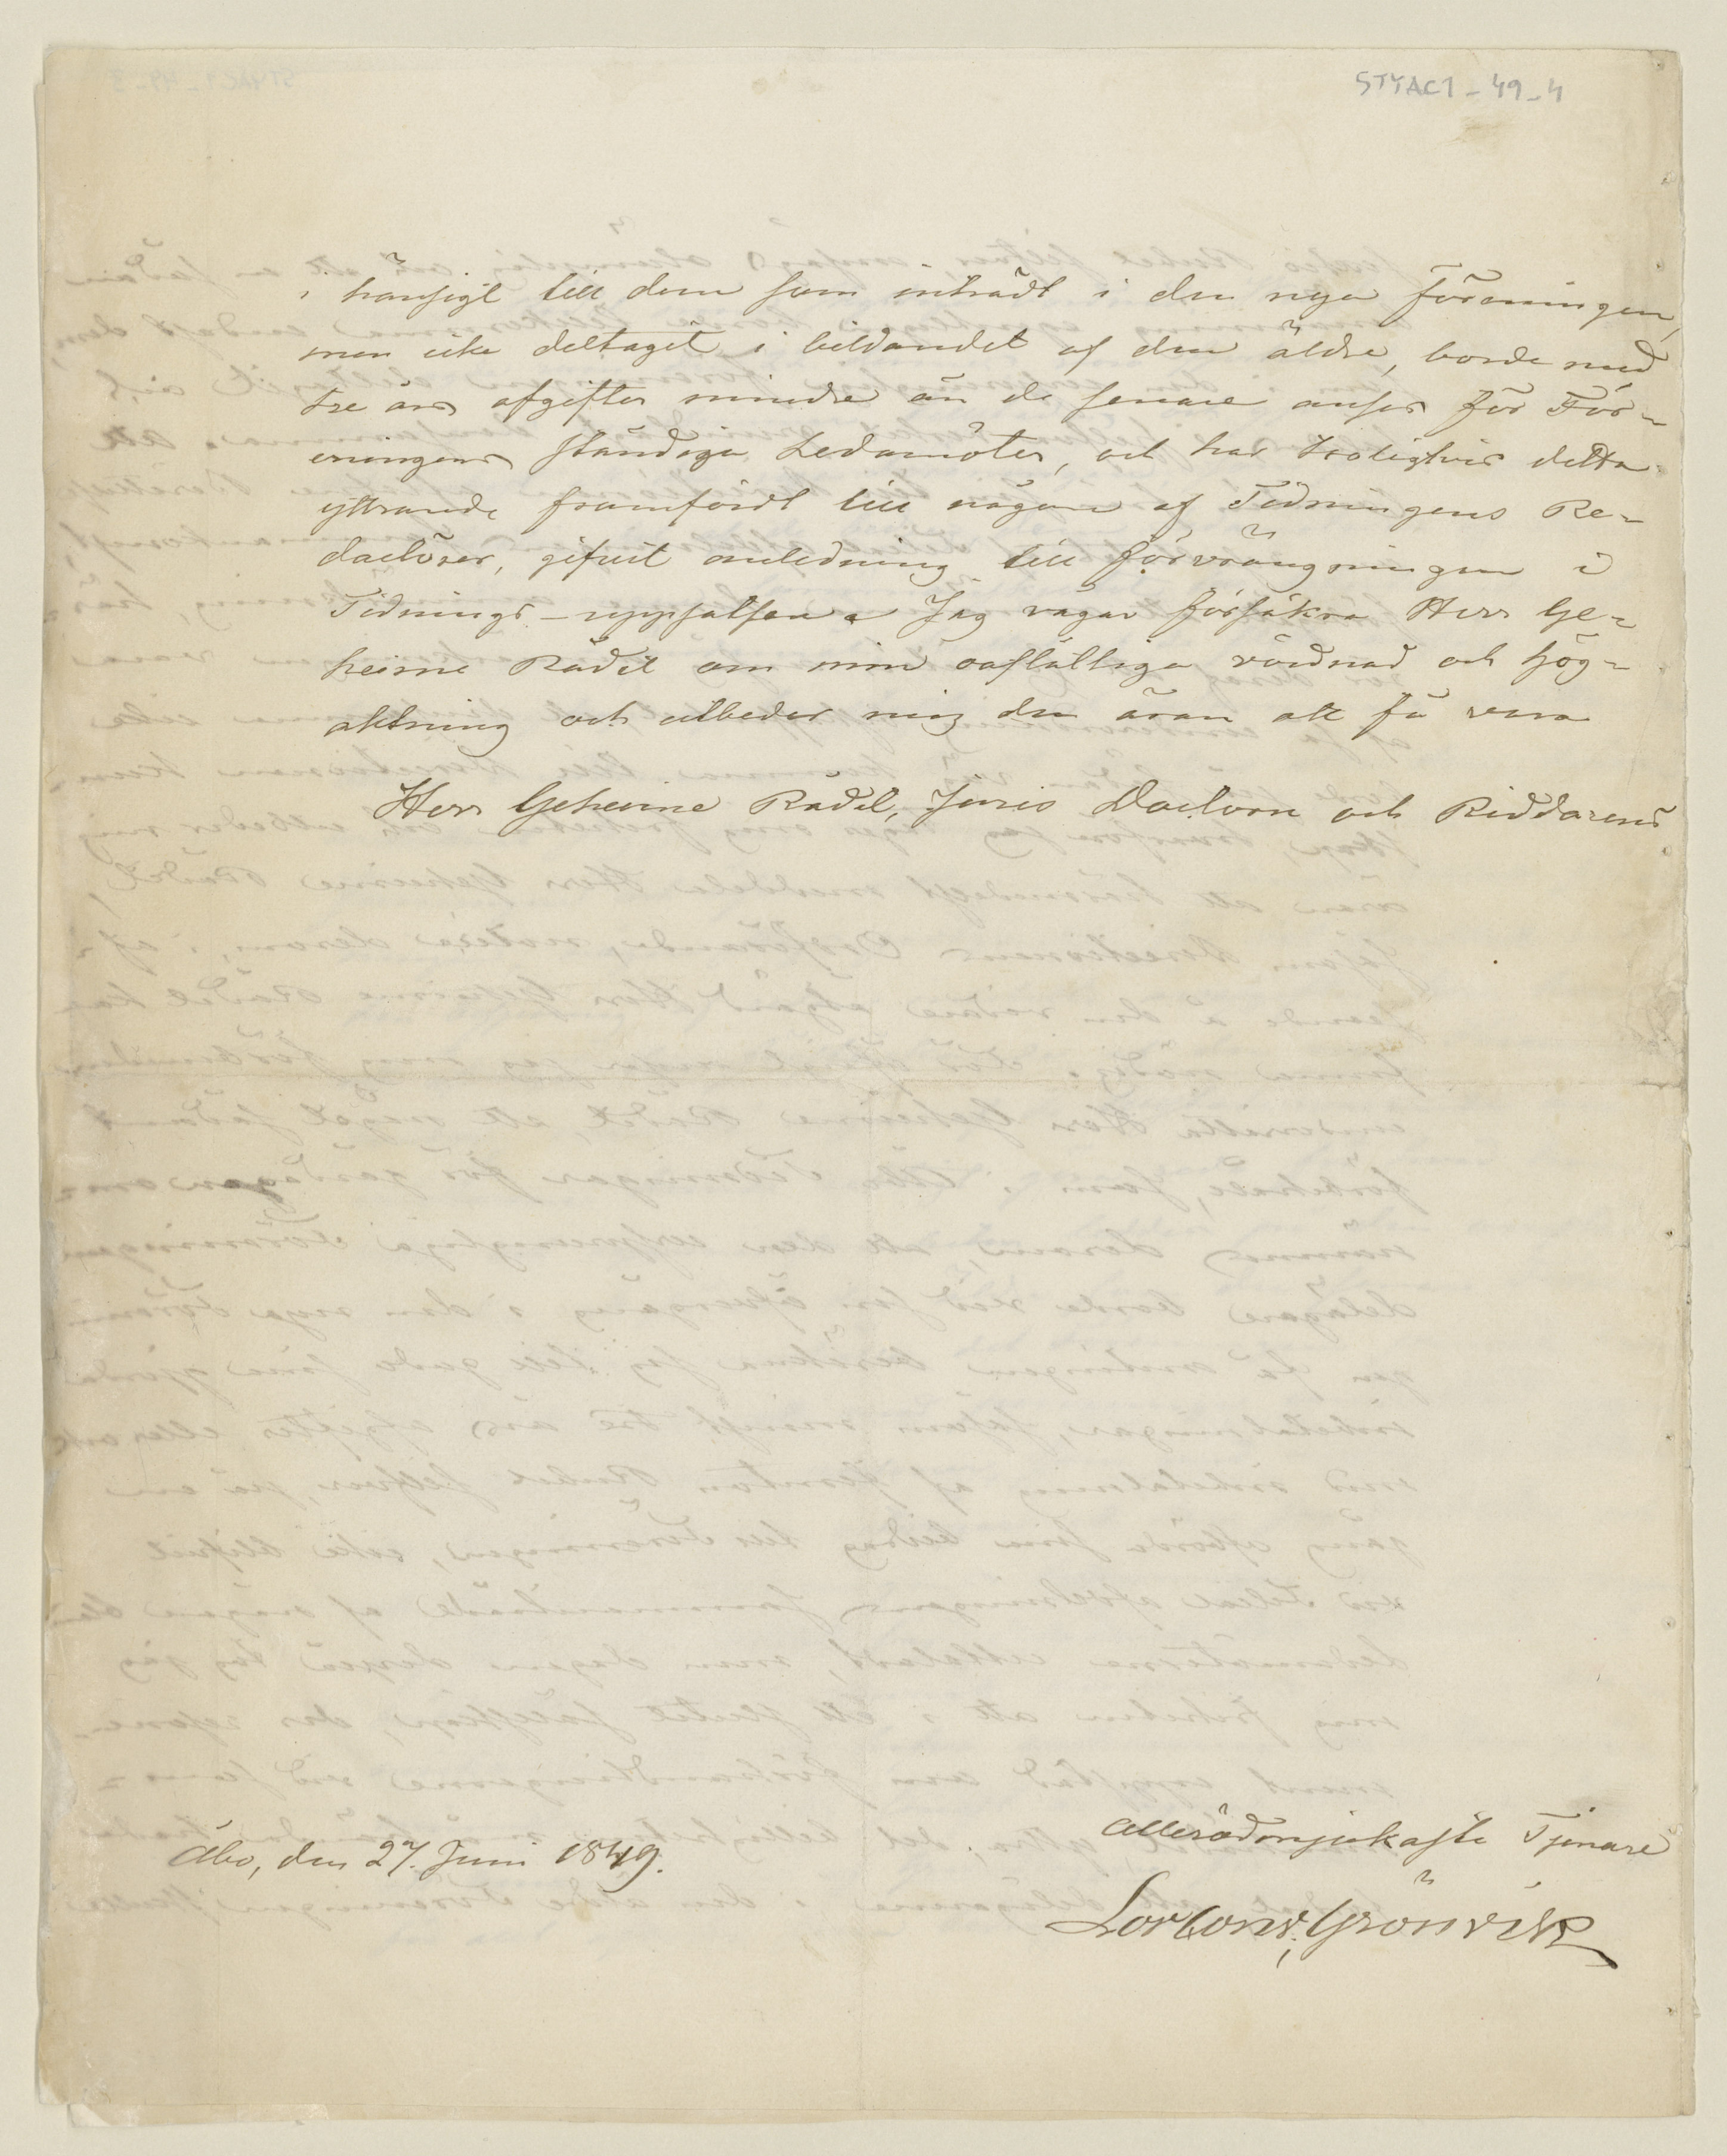 STYAC1 - 49 - 4
i hänsigt till dem som inträdt i den nya Föreningen,
men icke deltagit i bildandet af den äldre, borde med
tre års afgifter mindre än de senare anses för För-
eningens ständiga Ledamöter, och har troligtvis detta
yttrande framfördt till någon af Tidningens Re-
dactörer, gifvit anledning till förvrängningen i
Tidnings-uppsatsen. Jag vågar försäkra Herr Ge-
heime Rådet om min oaflåtliga vördnad och hög-
aktning och utbeder mig den äran att få vara
Herr Geheime Rådet, Juris Doctorn och Riddarens
allerödmjukaste Tjenare
Åbo, den 27. Juni 1849.
Grönvik